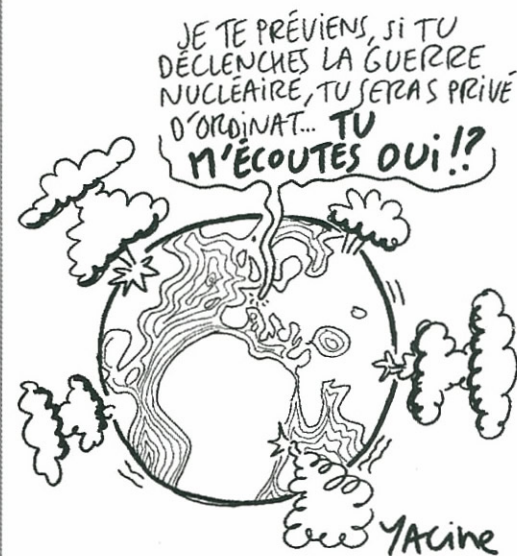 JE TE PRÉVIENS, SI TU
DÉCLENCHES LA GUERRE
NUCLÉAIRE, TU SERAS PRIVÉ
D'ORDINAT... TU
M'ÉCOUTES OUI !?
YACINE